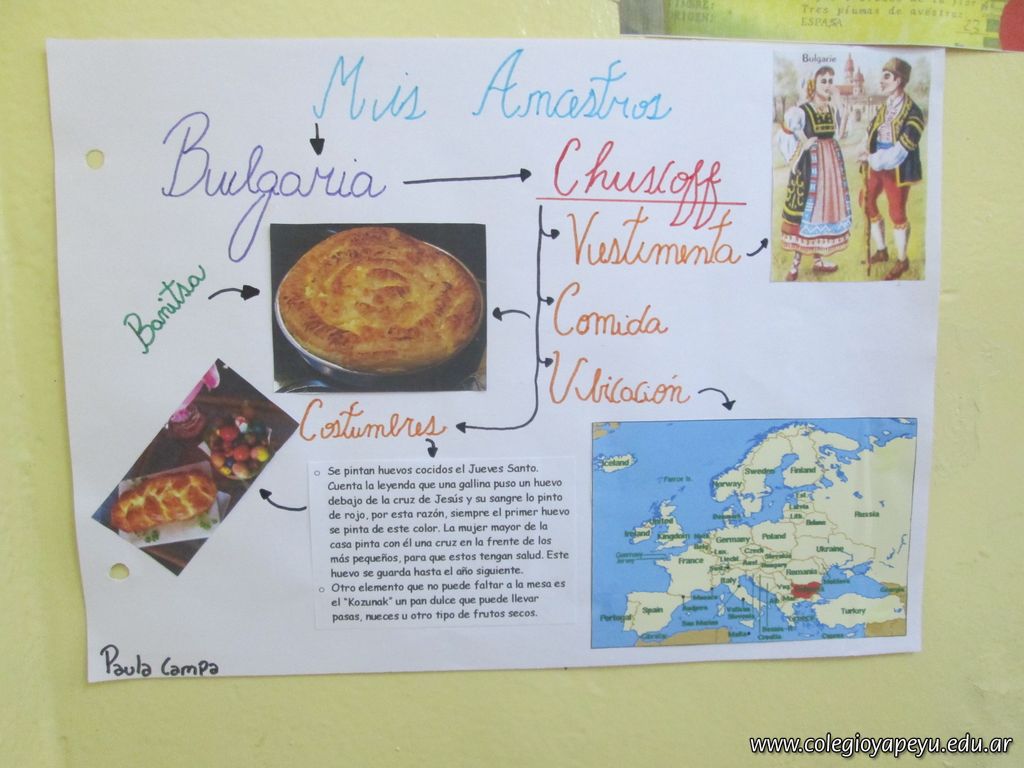 Tres plumas de avéstruz.
ESPAÑA
23
Mis Ancestros
Bulgaria
Chuscoff
Bulgarie
Vestimenta
Banitsa
Comida
Ubicación
Costumbres
○ Se pintan huevos cocidos el Jueves Santo.
Cuenta la leyenda que una gallina puso un huevo
debajo de la cruz de Jesús y su sangre lo pinto
de rojo, por esta razón, siempre el primer huevo
se pinta de este color. La mujer mayor de la
casa pinta con él una cruz en la frente de los
más pequeños, para que estos tengan salud. Este
huevo se guarda hasta el año siguiente.
○ Otro elemento que no puede faltar a la mesa es
el "Kozunak" un pan dulce que puede llevar
pasas, nueces u otro tipo de frutos secos.
Iceland
Sweden
Finland
Norway
Faroe Is.
Est.
Latvia
Lith.
Russia
United
Kingdom
Ireland
Denmark
Belarus
Germany
Poland
Ukraine
Lux.
Czech
Slovakia
France
Aust.
Hungary
Romania
Moldova
Italy
Spain
Portugal
Monaco
Andorra
San Marino
Turkey
Georgia
Gibraltar
Malta
Croatia
Greece
Cyprus
Paula Campa
www.colegioyapeyu.edu.ar